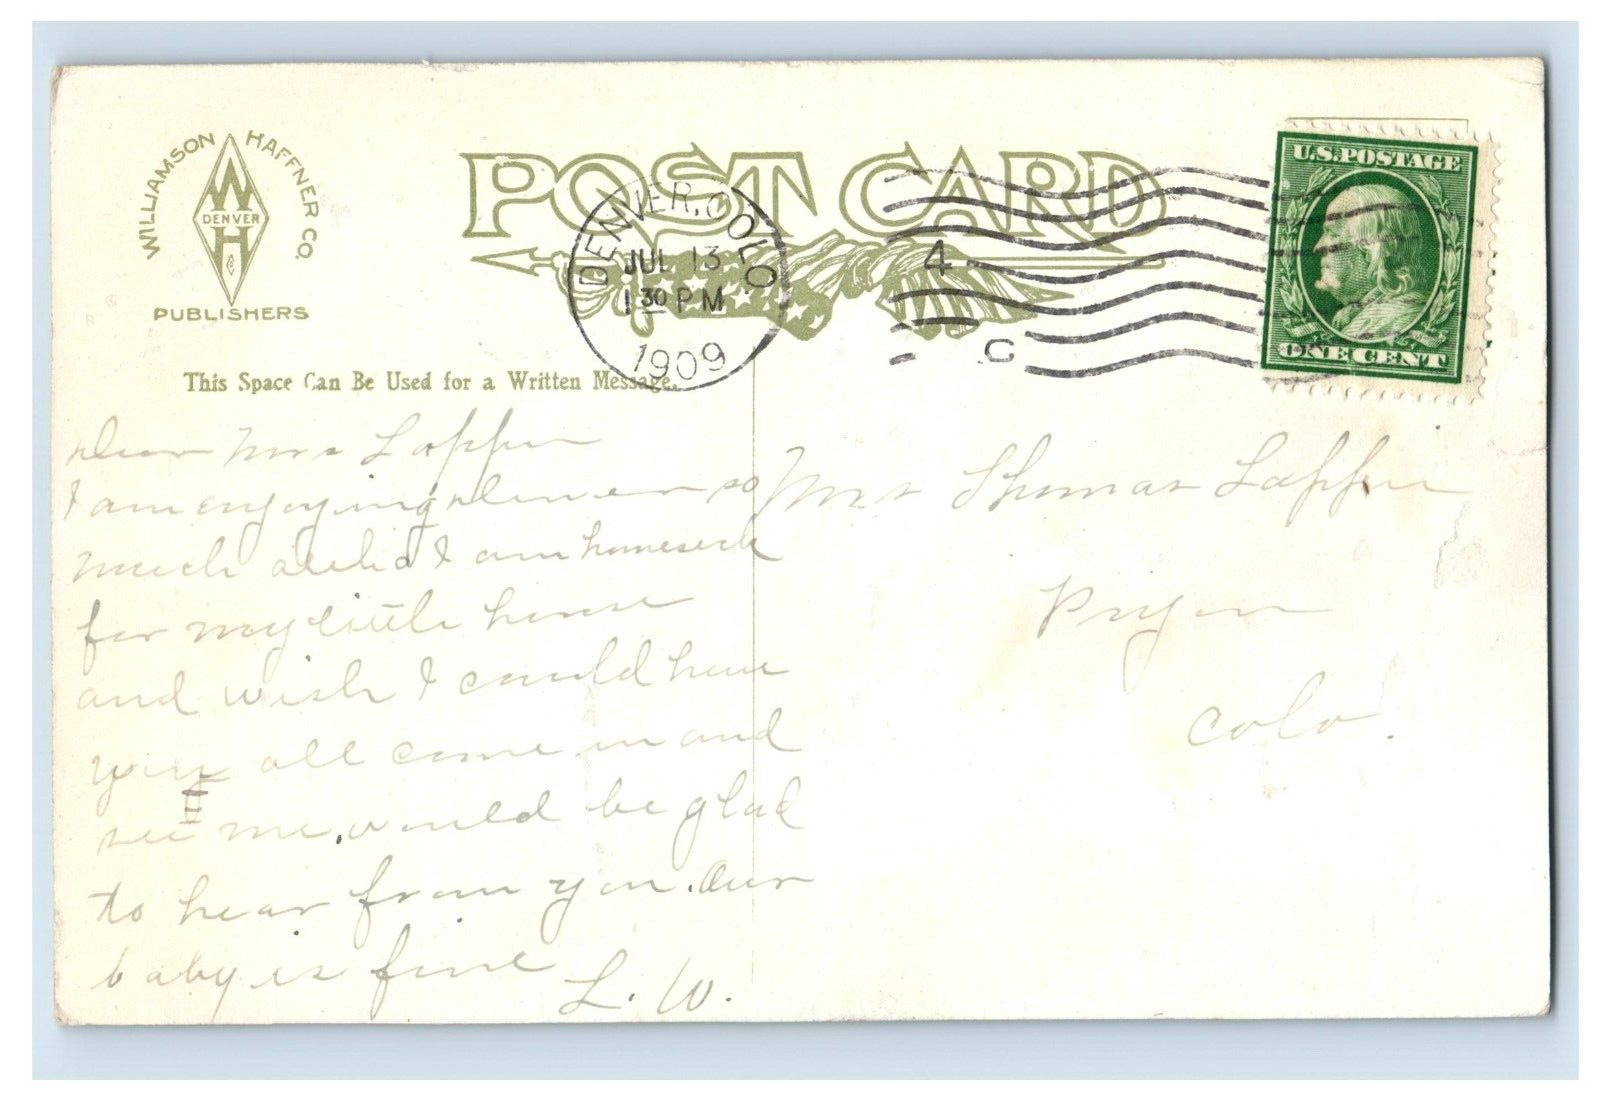 WILLIAMSON HAFFNER CO.
W
DENVER
H
PUBLISHERS
POST CARD
DENVER, COLO
JUL 13
1 30 PM
1909
4
C
U.S. POSTAGE
ONE CENT
This Space Can Be Used for a Written Message.
Dear Mrs Lappin
I am enjoying Denver so
much altho I am homesick
for my little home
and wish I could have
you all come in and
see me. would be glad
to hear from you. Our
baby is fine
L. W.
Mrs Thomas Lappin
Pryor
Colo.